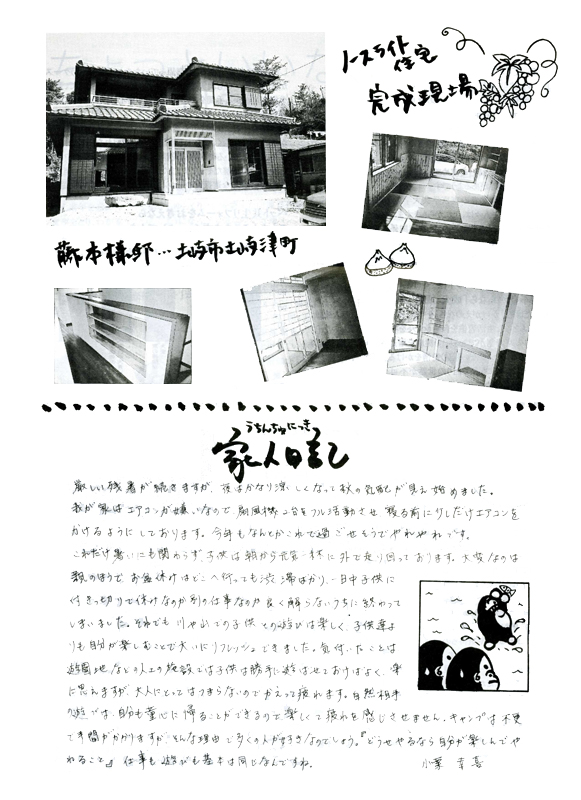 ノースライト
住宅
完成現場
藤本様邸…土岐市土岐津町
うちんちゅにっき
家人日記
厳しい残暑が続きますが、夜はかなり涼しくなって秋の気配が見え始めました。
我が家はエアコンが嫌いなので、扇風機2台をフル活動させ寝る前に少しだけエアコンを
かけるようにしております。今年もなんとかこれで過ごせそうでやれやれです。
これだけ暑いにも関わらず、子供は朝から元気一杯に外で走り回っております。大変なのは
親のほうで、お盆休みはどこへ行っても渋滞ばかり、一日中子供に
付きっ切りで休みなのか別の仕事なのか良く解らないうちに終わって
しまいました。それでも川や山での子供との遊びは楽しく、子供達よ
りも自分が楽しむことで大いにリフレッシュできました。気付いたことは
遊園地などの人工の施設では子供は勝手に遊ばせておけばよく、楽
に思えますが、大人にとってはつまらないのでかえって疲れます。自然相手
の遊びでは、自分も童心に帰ることができるので楽しくて疲れを感じさせません。キャンプは不便
で手間がかかりますが、そんな理由で多くの人が好きなのでしょう。『どうせやるなら自分が楽しんでや
れること』仕事も遊びも基本は同じなんですね。
小栗 幸喜